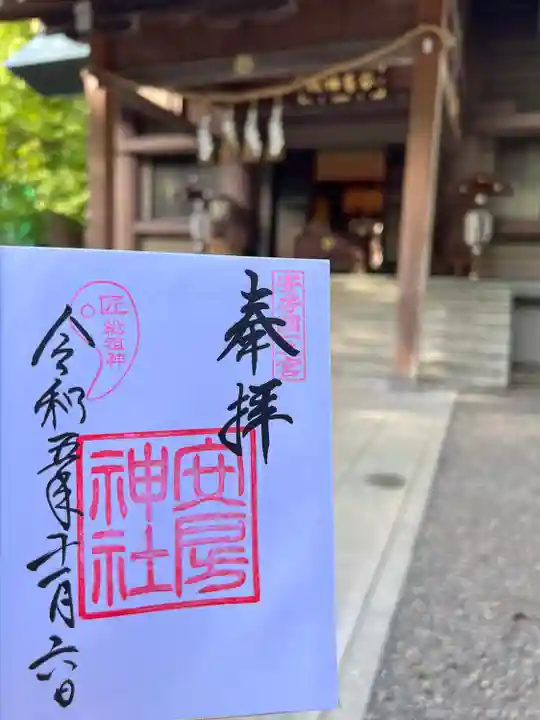 安房国一宮
奉拝
安房
神社
匠総祖神
令和五年十一月六日